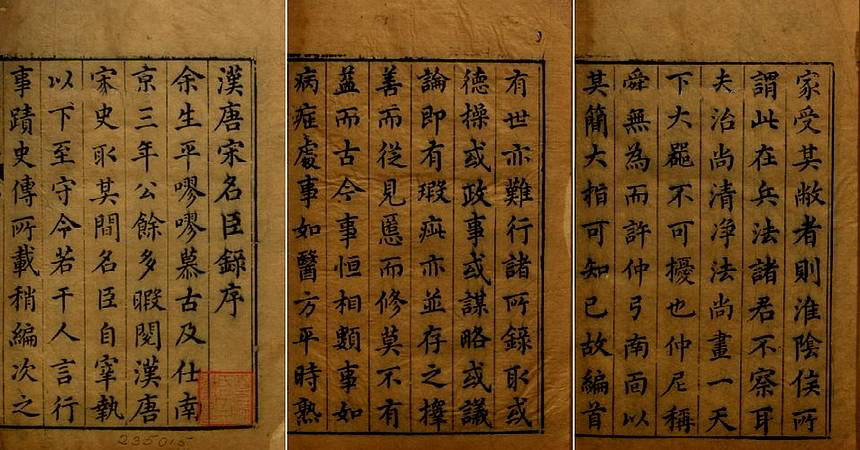 漢唐宋名臣錄序
余生平嘐嘐慕古及仕南
京三年公餘多暇閱漢唐
宋史取其間名臣自宰執
以下至守令若干人言行
事蹟史傳所載稍編次之
235015
有世亦難行諸所錄取或
德操或政事或謀略或議
論即有瑕疵亦並存之擇
善而從見慝而修莫不有
益而古今事恒相類事如
病症處事如醫方平時熟
家受其敝者則淮陰侯所
謂此在兵法諸君不察耳
夫治尚清淨法尚畫一天
下大器不可擾也仲尼稱
舜無為而許仲弓南面以
其簡大指可知已故編首